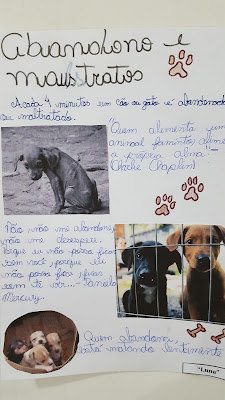 Abandono e
maus tratos
A cada 4 minutos um cão ou gato é abandonado
ou maltratado.
"Quem alimenta um
animal faminto, alimenta
a própria alma" -
(Charlie Chaplin)
Não, não me abandone,
não me desespere,
porque eu não posso ficar
sem você, porque eu
não posso ficar, ficar
sem te ver... -
Mercury.
Quem abandona,
está matando lentamente.
"Luna"